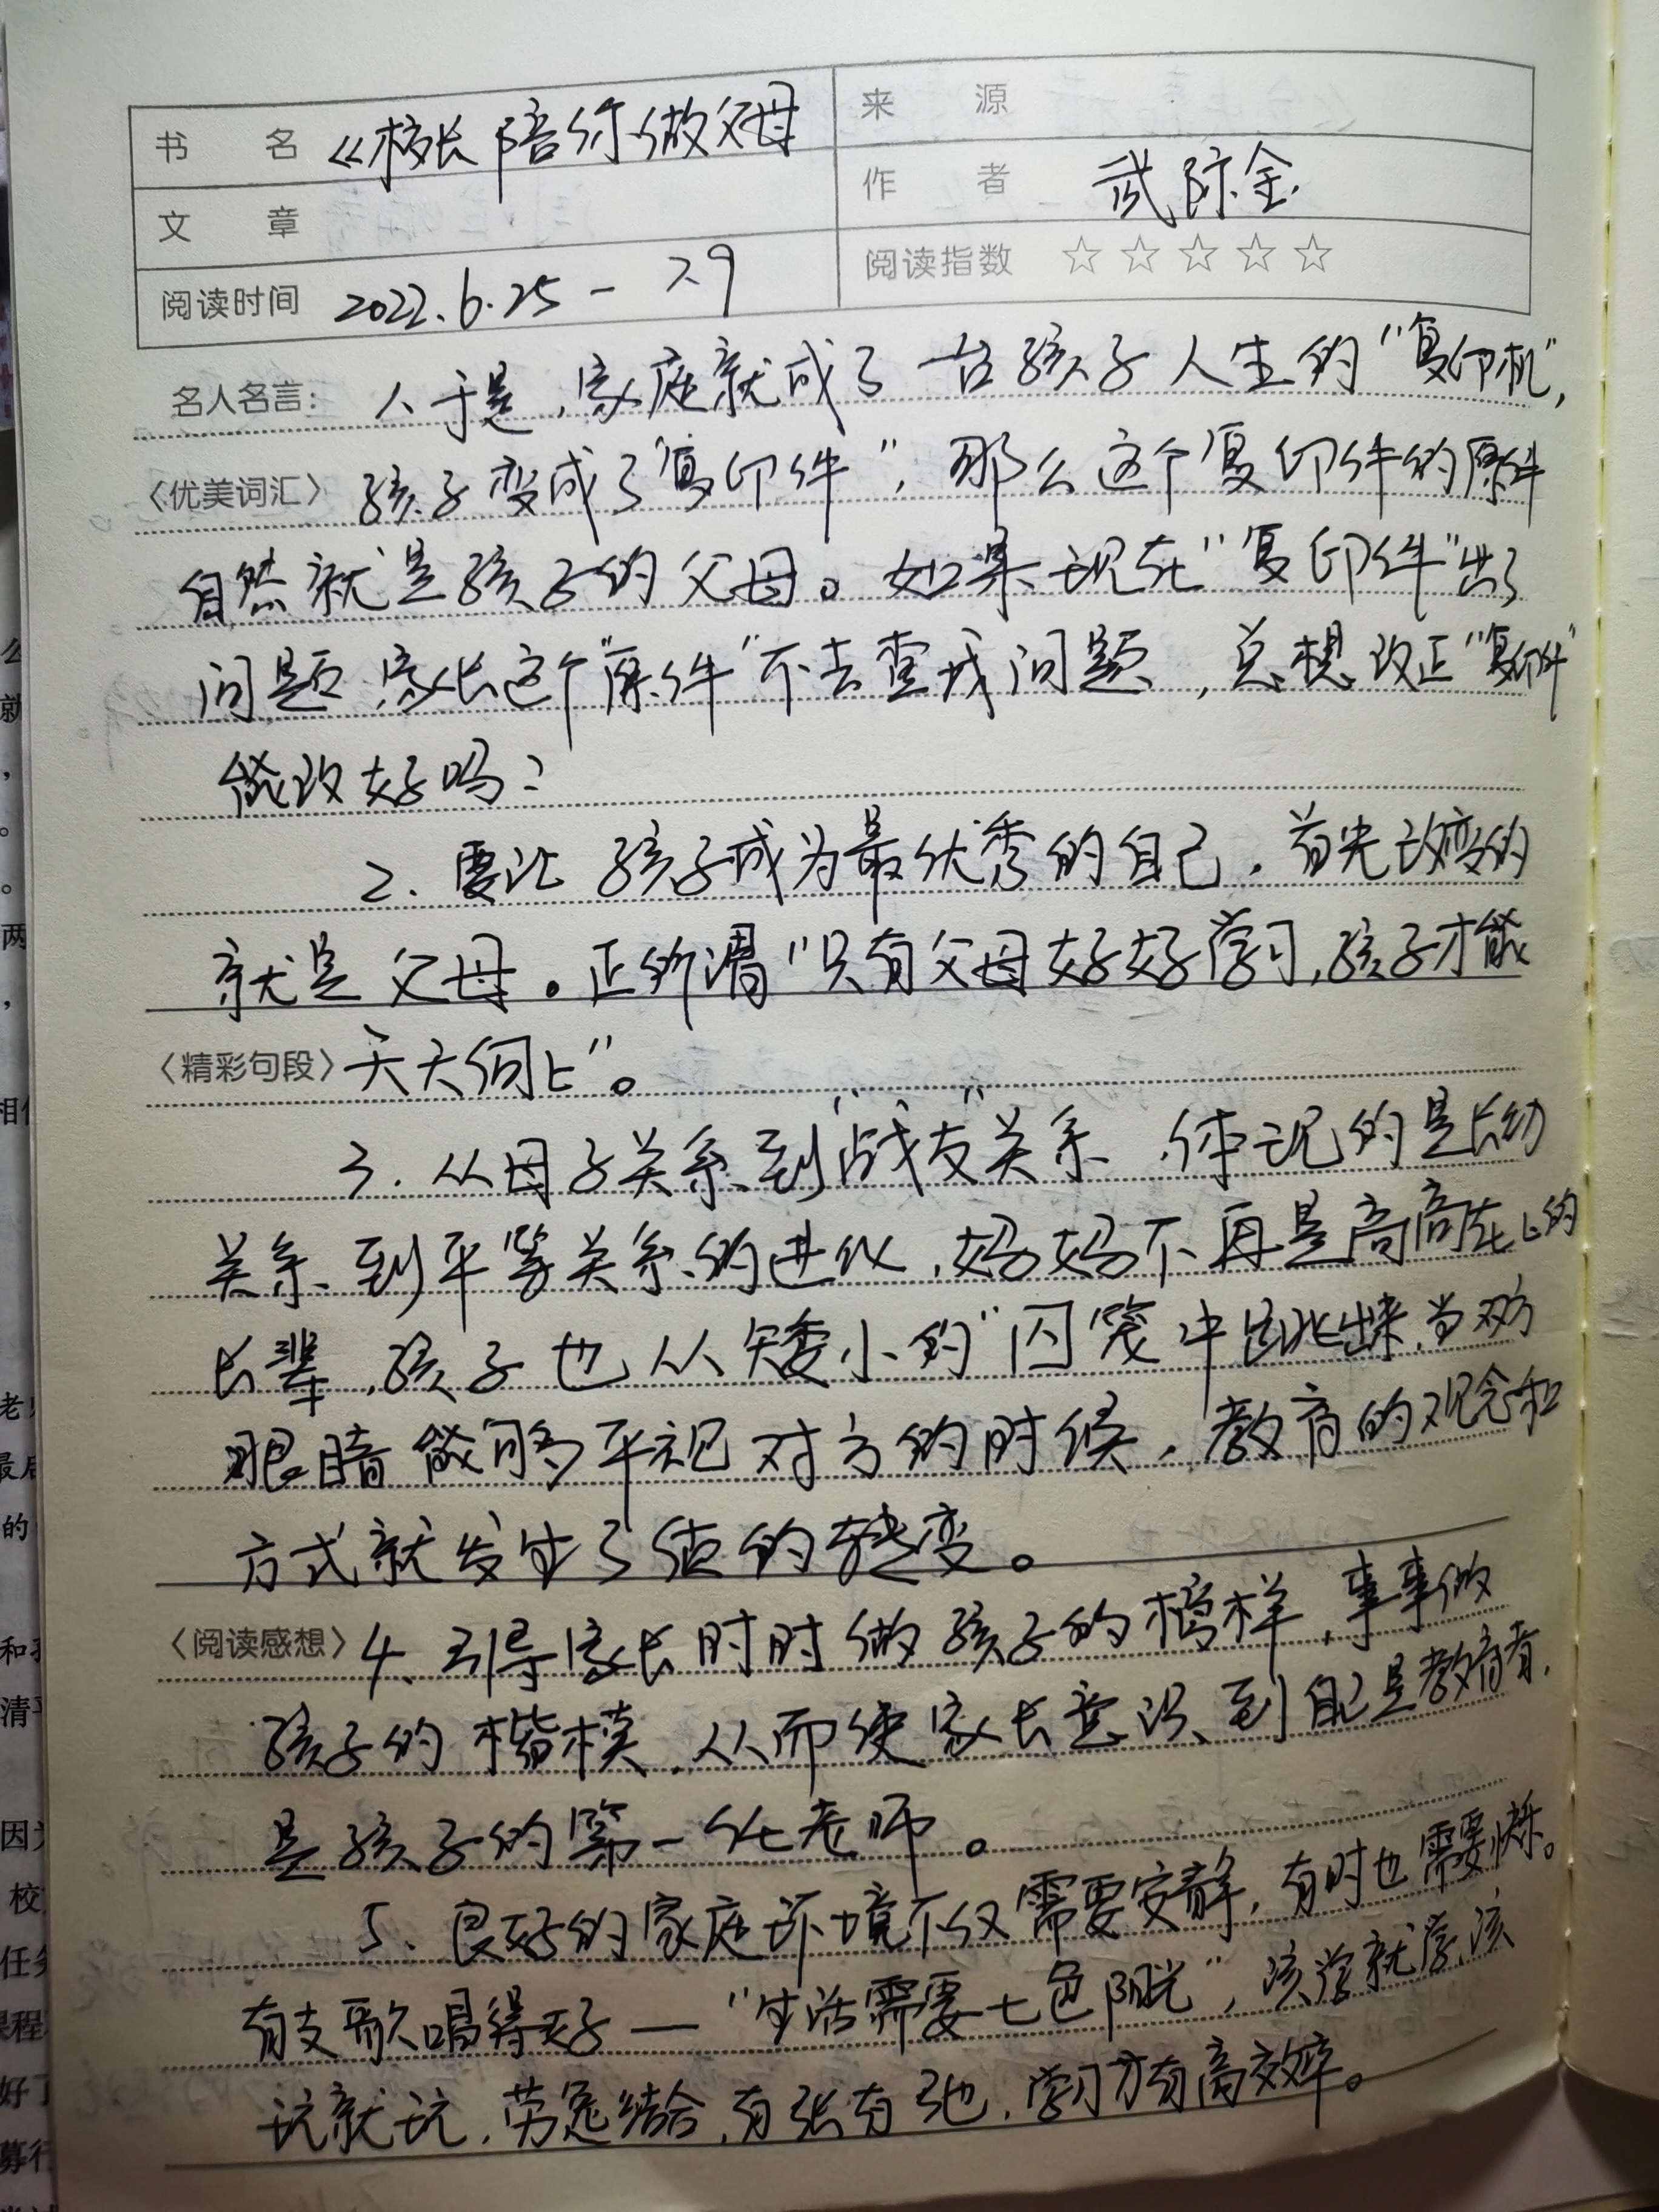 书 名 《校长陪你做父母
来 源
作 者 武际金
文 章
阅读指数 ☆☆☆☆☆
阅读时间 2022.6.25-29
名人名言: 1、于是,家庭就成了一台孩子人生的“复印机”,
〈优美词汇〉孩子变成了“复印件”,那么这个复印件的原件
自然就是孩子的父母。如果现在“复印件”出了
问题,家长这个“原件”不去查找问题,总想改正“复印件”
能改好吗?
2、要让孩子成为最优秀的自己,首先改变的
就是父母。正所谓“只有父母好好学习,孩子才能
〈精彩句段〉天天向上”。
3、从母子关系到“战友”关系,体现的是长幼
关系到平等关系的进化,妈妈不再是高高在上的
长辈,孩子也从矮小的“囚笼中跳出来,当双方
眼睛能够平视对方的时候,教育的观念和
方式就发生了值的转变。
〈阅读感想〉4、引导家长时时做孩子的榜样,事事做
孩子的楷模,从而使家长意识到自己是教育者,
是孩子的第一任老师。
5、良好的家庭环境不仅需要安静,有时也需要快乐。
有支歌唱得好—“生活需要七色阳光”,该学就学,该
玩就玩,劳逸结合,有张有弛,学习方有高效率。